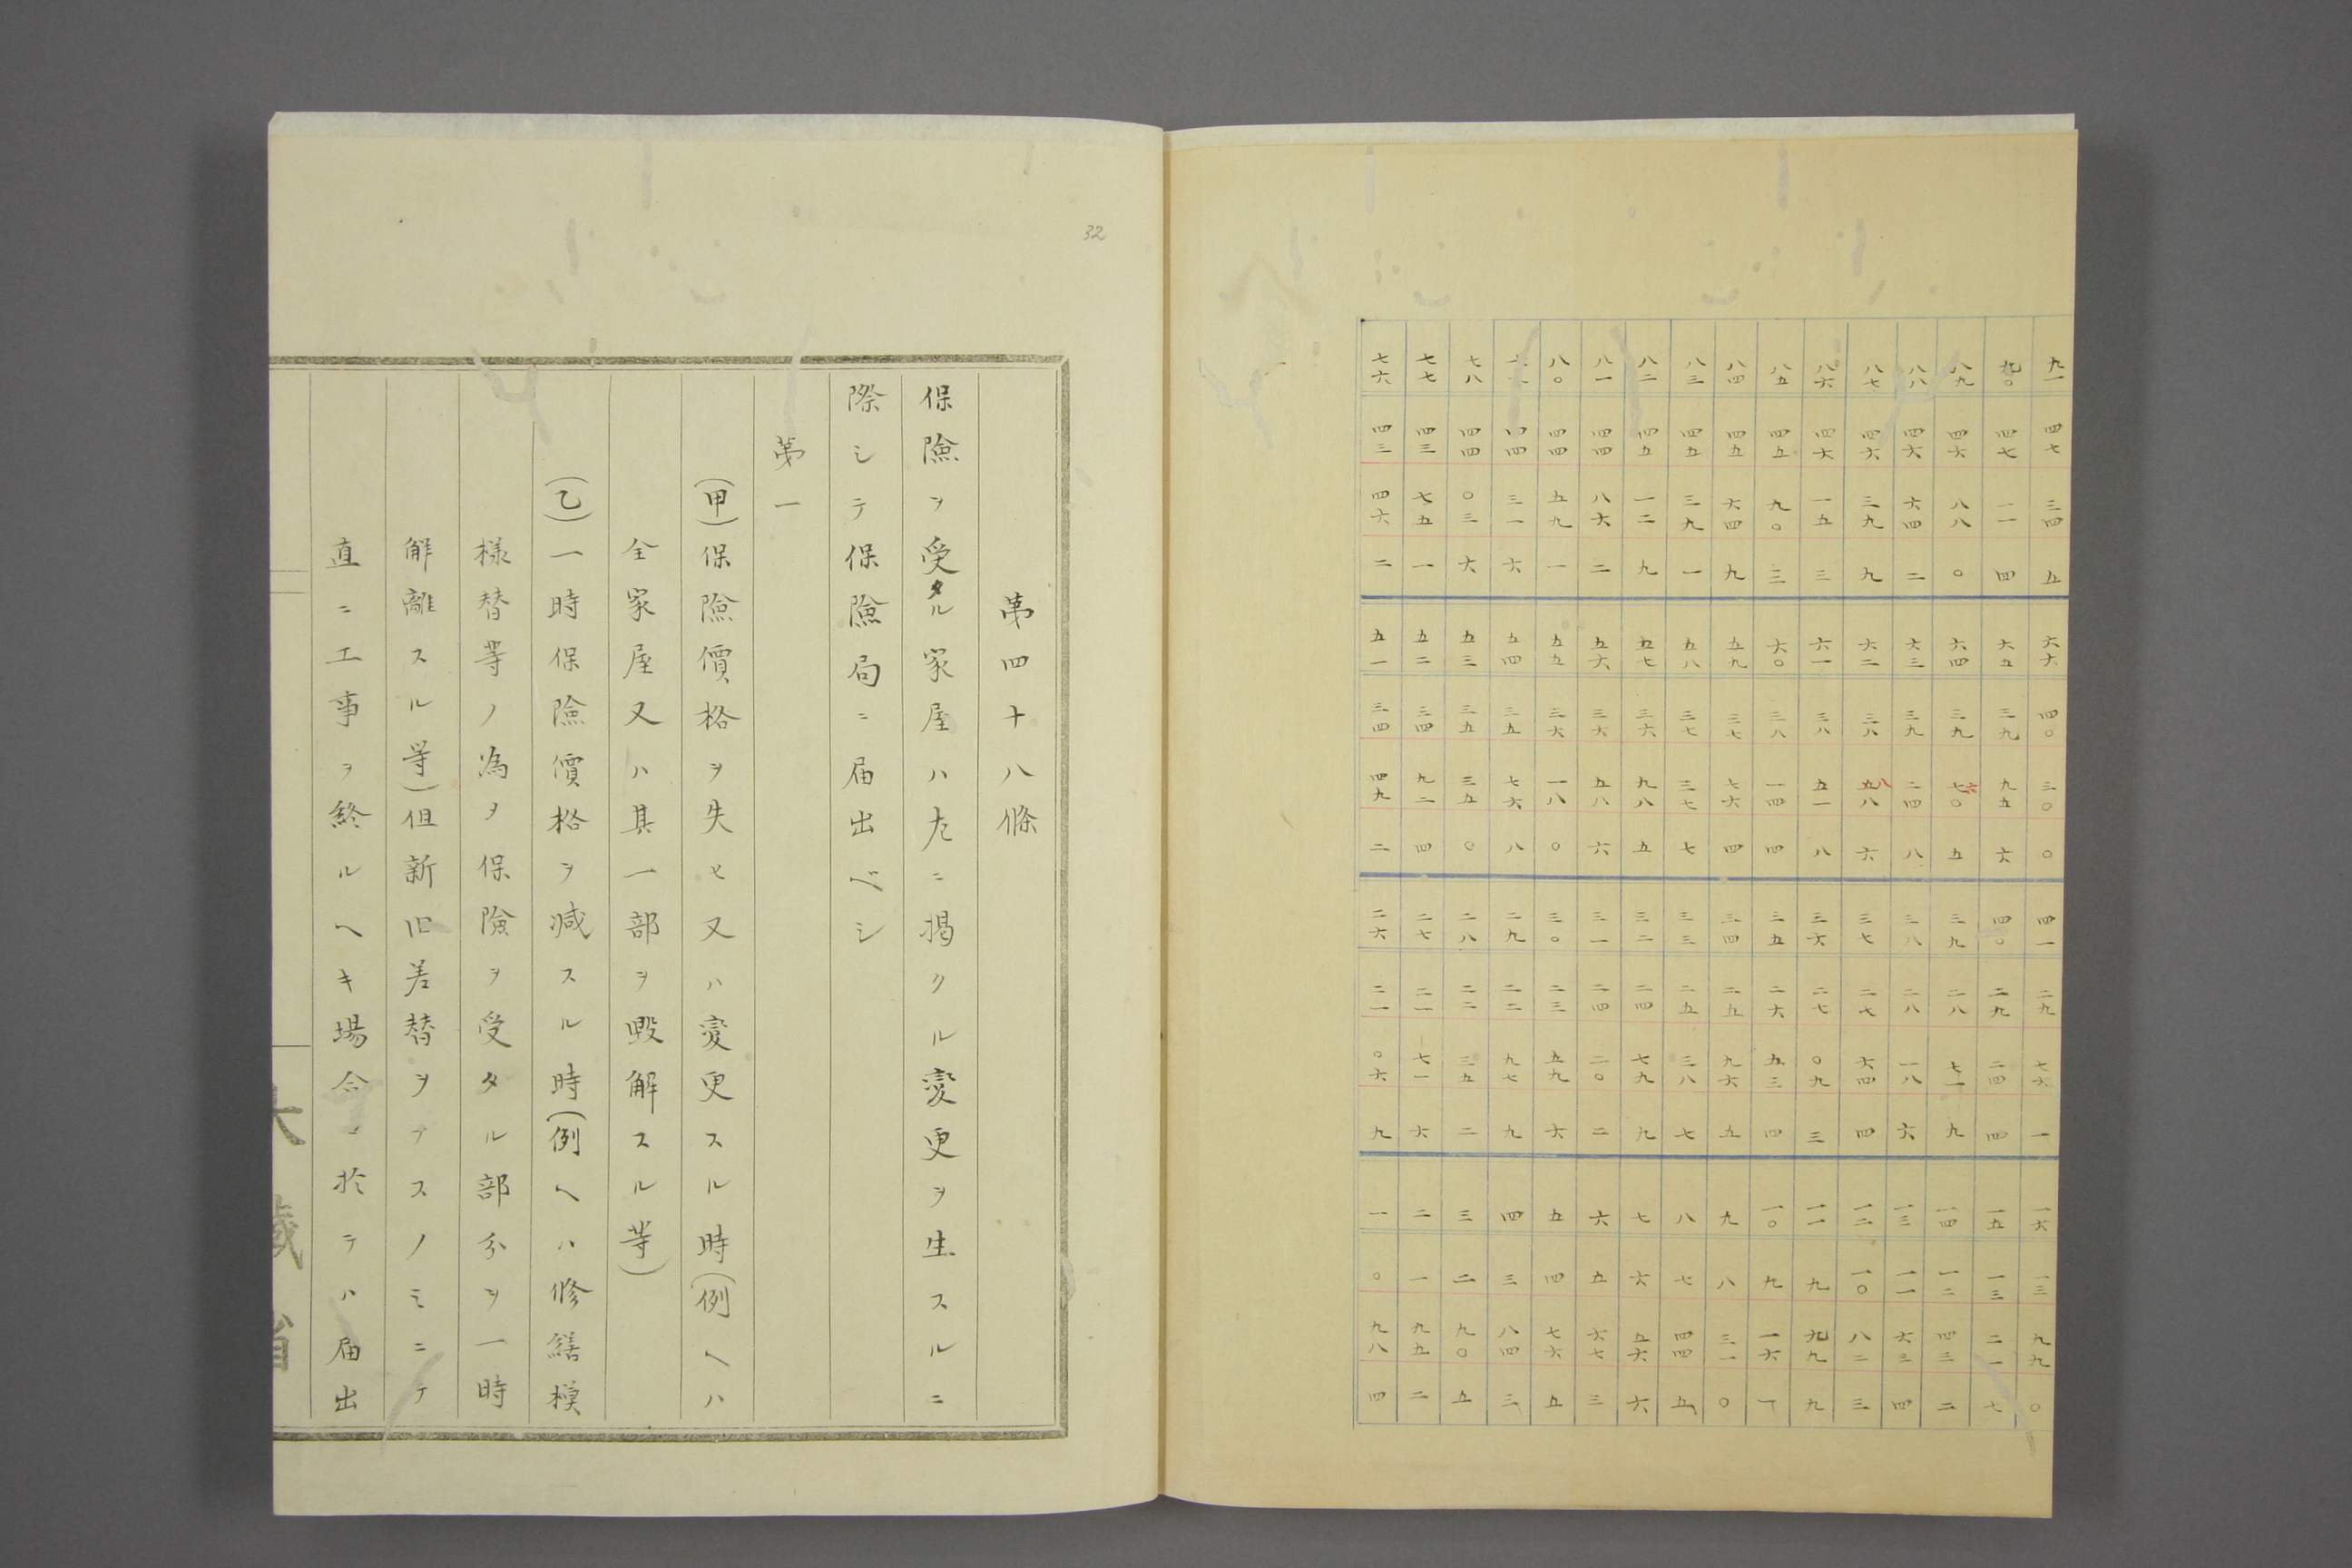 九一 四七 三四 五 六六 四〇 三〇 〇 四一 二九 七六 一 一六 一三 九九 〇
九〇 四七 一一 四 六五 三九 九五 六 四〇 二九 二四 四 一五 一三 二一 七
八九 四六 八八 〇 六四 三九 七〇 六 五 三九 二八 七一 九 一四 一二 四三 二
八八 四六 六四 二 六三 三九 二四 八 三八 二八 一八 六 一三 一一 六三 四
八七 四六 三九 九 六二 三八 五八 八 六 三七 二七 六四 四 一二 一〇 八二 三
八六 四六 一五 三 六一 三八 五一 八 三六 二七 〇九 三 一一 九 九九 九
八五 四五 九〇 三 六〇 三八 一四 四 三五 二六 五三 四 一〇 九 一六 一
八四 四五 六四 九 五九 三七 七六 四 三四 二五 九六 五 九 八 三一 〇
八三 四五 三九 一 五八 三七 三七 七 三三 二五 三八 七 八 七 四四 五
八二 四五 一二 九 五七 三六 九八 五 三二 二四 七九 九 七 六 五六 六
八一 四四 八六 二 五六 三六 五八 六 三一 二四 二〇 二 六 五 六七 三
八〇 四四 五九 一 五五 三六 一八 〇 三〇 二三 五九 六 五 四 七六 五
四四 三一 六 五四 三五 七六 八 二九 二二 九七 九 四 三 八四 三
七八 四四 〇三 六 五三 三五 三五 〇 二八 二二 三五 二 三 二 九〇 五
七七 四三 七五 一 五二 三四 九二 四 二七 二一 七一 六 二 一 九五 二
七六 四三 四六 二 五一 三四 四九 二 二六 二一 〇六 九 一 〇 九八 四
32
苐四十八條
保險ヲ受タル家屋ハ左ニ揭クル変更ヲ生スルニ
際シテ保險局ニ届出ベシ
苐一
(甲)保險價格ヲ失ヒ又ハ変更スル時(例ヘハ
全家屋又ハ其一部ヲ毀解スル等)
(乙)一時保險價格ヲ减スル時(例ヘハ修繕模
様替等ノ為ヲ保險ヲ受タル部分ヲ一時
解離スル等)但新旧差替ヲナスノミニテ
直ニ工事ヲ終ルヘキ場合ニ於テハ届出
大藏省